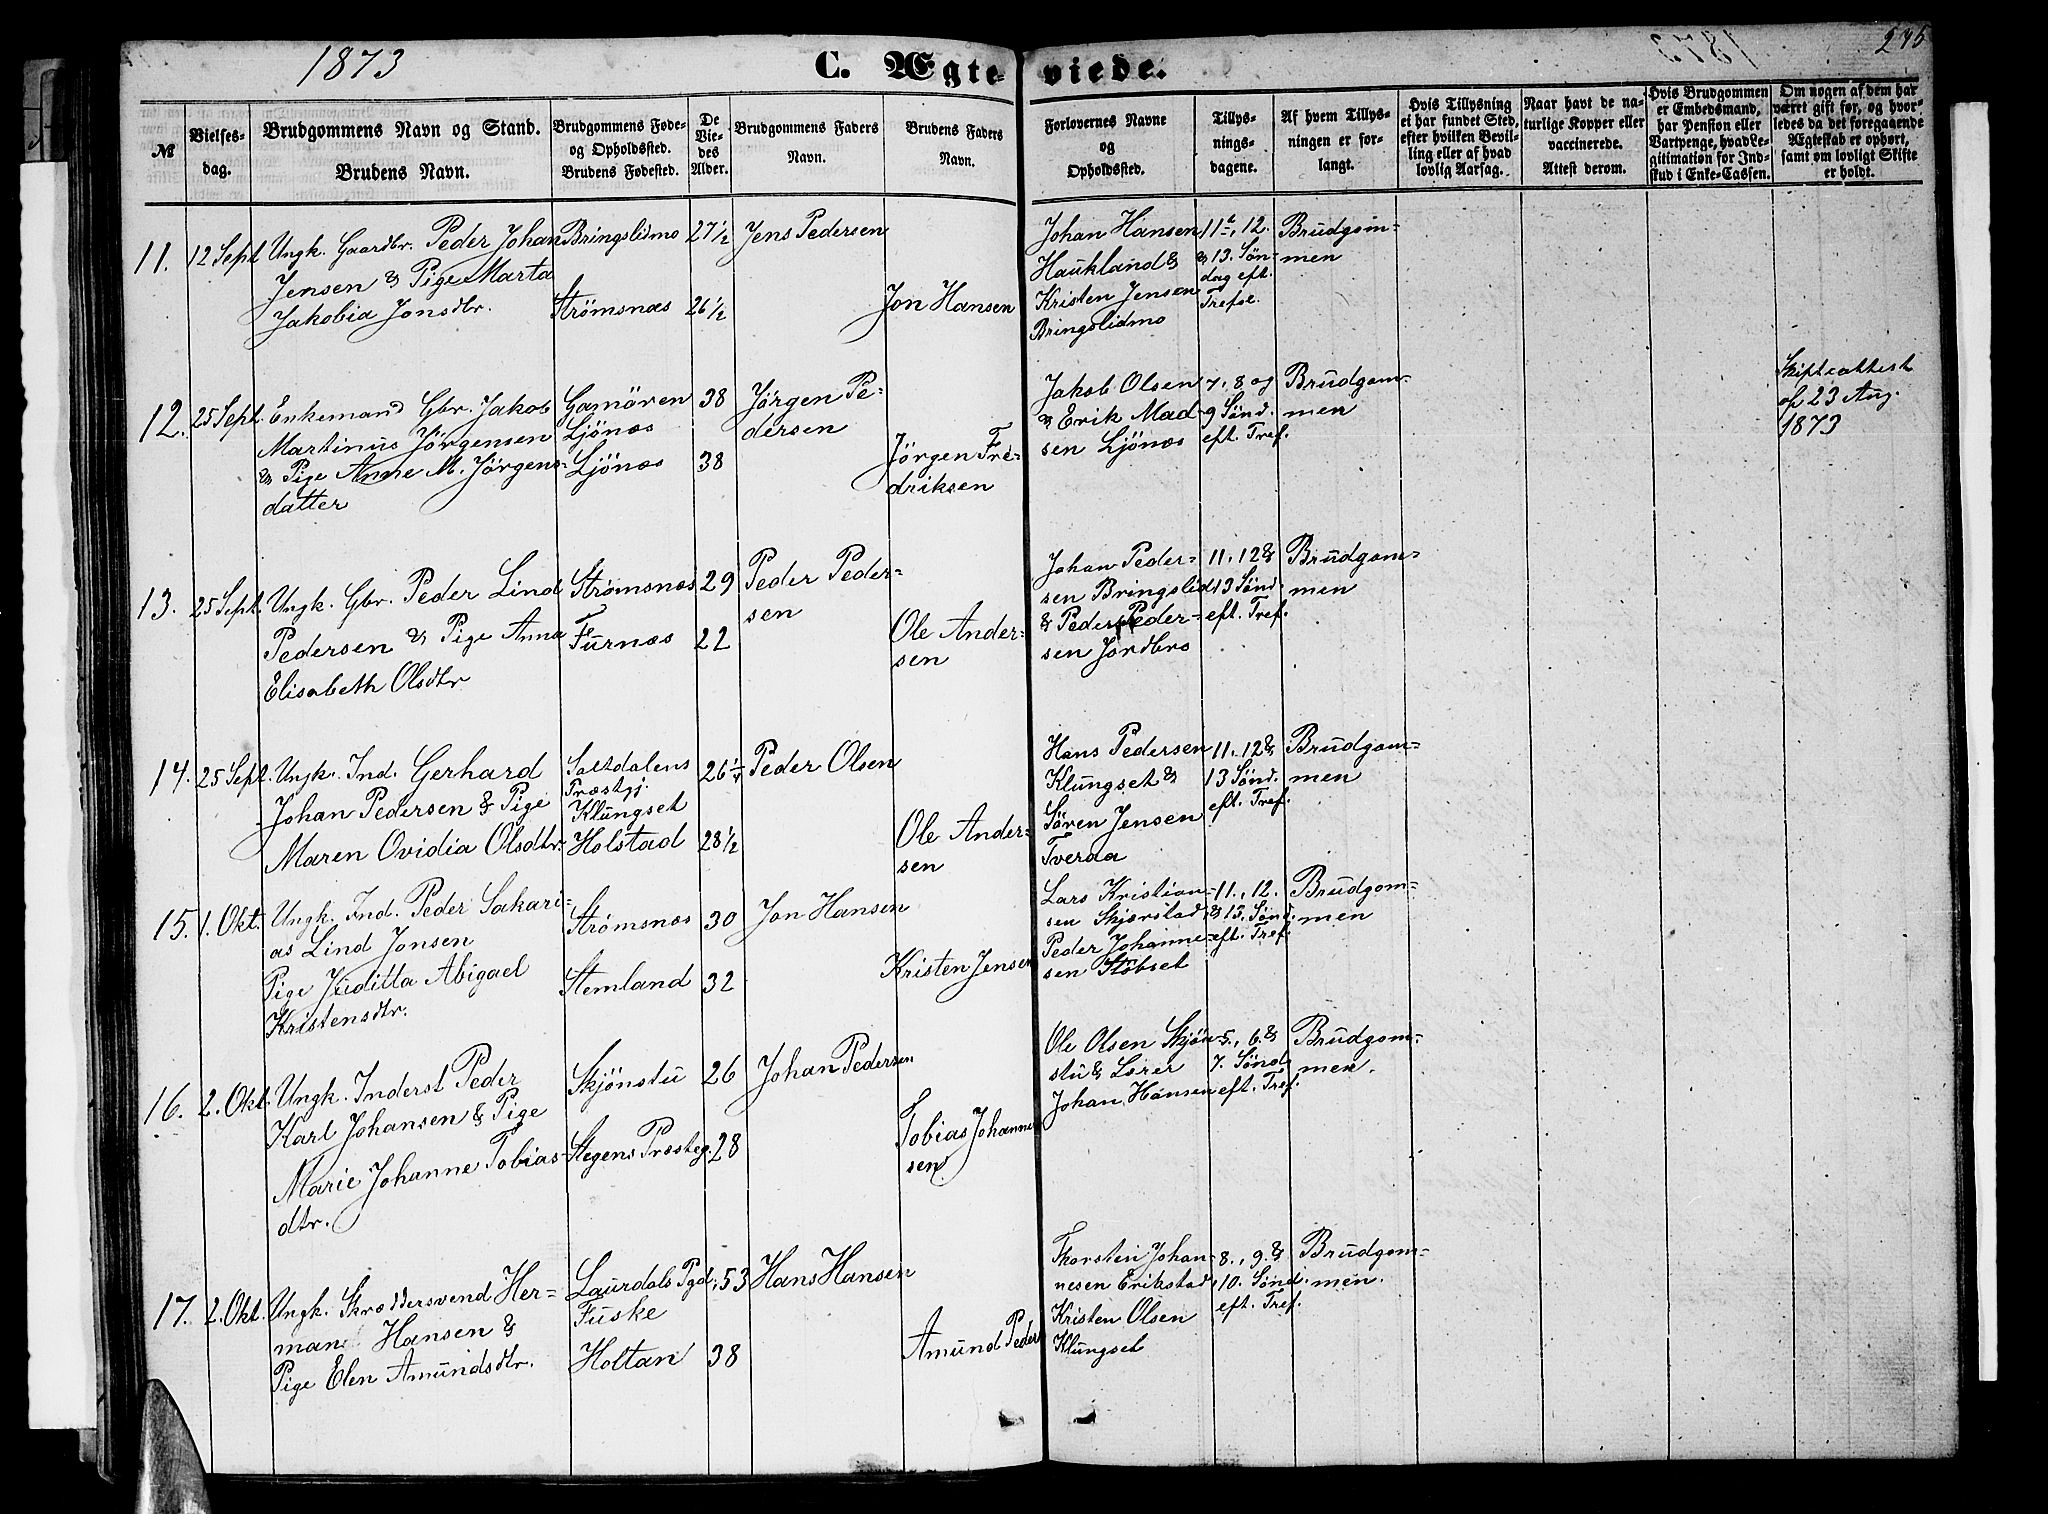 1873
C. Ægteviede.
245
№
Vielsesdag.
Brudgommens Navn og Stand.
Brudens Navn.
Brudgommens Føde- og Opholdssted.
Brudens Fødested.
De Viedes Alder.
Brudgommens Faders Navn.
Brudens Faders Navn.
Forlovernes Navne og Opholdssted.
Tillysningsdagene.
Af hvem Tillysningen er forlangt.
Hvis Tillysning ei har fundet Sted, efter hvilken Bevilling eller af hvad lovlig Aarsag.
Naar havt de naturlige Kopper eller vaccinerede. Attest derom.
Hvis Brudgommen er Embedsmand, har Pension eller Vartpenge, hvad Legitimation for Indskud i Enke-Cassen.
Om nogen af dem har været gift før, og hvorledes da det foregaaende Ægteskab er ophørt, samt om lovligt Skifte er holdt.
11. 12 Sept. Ungk. Gaardbr. Peder Johan Bringslidmo 27½ Jens Pedersen
Jensen & Pige Marta
Jakobia Jonsdtr. Strömsnæs 26½ Jon Hansen
Johan Hansen 11te, 12. Brudgom-
Haukland & & 13. Søn- men
dag eft.
Kristen Jensen Trefse.
Bringslidmo
12. 25 Sept. Enkemand Gbr. Jakob Gamören 38 Jörgen Pe-
Martinus Jörgensen Ljönæs dersen
& Pige Anne M. Jörgens- Ljönæs 38 Jörgen Fre-
datter driksen
Jakob Olsen 7, 8 og Brudgom-
& Erik Mad- 9 Sönd. men
sen Ljönæs eft. Tref.
Skifteattest
af 23 Aug.
1873
13. 25 Sept. Ungk. Gbr. Peder Lind Strömsnæs 29 Peder Peder-
sen
Pedersen & Pige Anna Furnæs 22 Ole Ander-
Elisabeth Olsdtr sen
Johan Peder- 11, 12 & Brudgom-
sen Bringslid 13 Sönd. men
& Peder Peder- eft. Tref.
sen Jordbro
14. 25 Sept. Ungk. Ind. Gerhard Saltdalens 26¼ Peder Olsen
Præstgj.
Johan Pedersen & Pige Klungset
Maren Ovidia Olsdtr. Holstad 28½ Ole Ander-
sen
Hans Pedersen 11, 12 & Brudgom-
Klungset & 13 Sönd. men
eft. Tref.
Sören Jensen
Tveraa
15. 1. Okt. Ungk. Ind. Peder Sakari- Strömsnæs 30 Jon Hansen
as Lind Jonsen
Pige Juditta Abigael Stemland 32 Kristen Jensen
Kristensdtr.
Lars Kristian- 11., 12. Brudgom-
sen Skjerstad, & 13. Sönd. men
Peder Johanne- eft. Tref.
sen Stöbset
16. 2. Okt. Ungk. Inderst Peder Skjönstu 26 Johan Pedersen
Karl Johansen & Pige
Marie Johanne Tobias- Stegens Præsteg. 28 Tobias Johanne
dtr. sen
Ole Olsen Skjön- 5., 6. & Brudgom-
stu & Lærer 7. Sönd. men.
Johan Hansen eft. Tref.
17. 2. Okt. Ungk. Skræddersvend Her- Laurdals Pgd; 53 Hans Hansen
man Hansen & Fuske
Pige Elen Amundsdtr. Holtan 38 Amund Peder
Thorstein Johan- 8., 9. & Brudgom-
nesen Erikstad, 10. Sönd. men.
Kristen Olsen eft. Tref.
Klungset